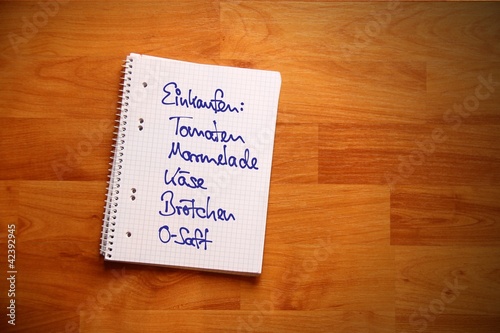 Einkaufen:
Tomaten
Marmelade
Käse
Brötchen
O-Saft
42392945